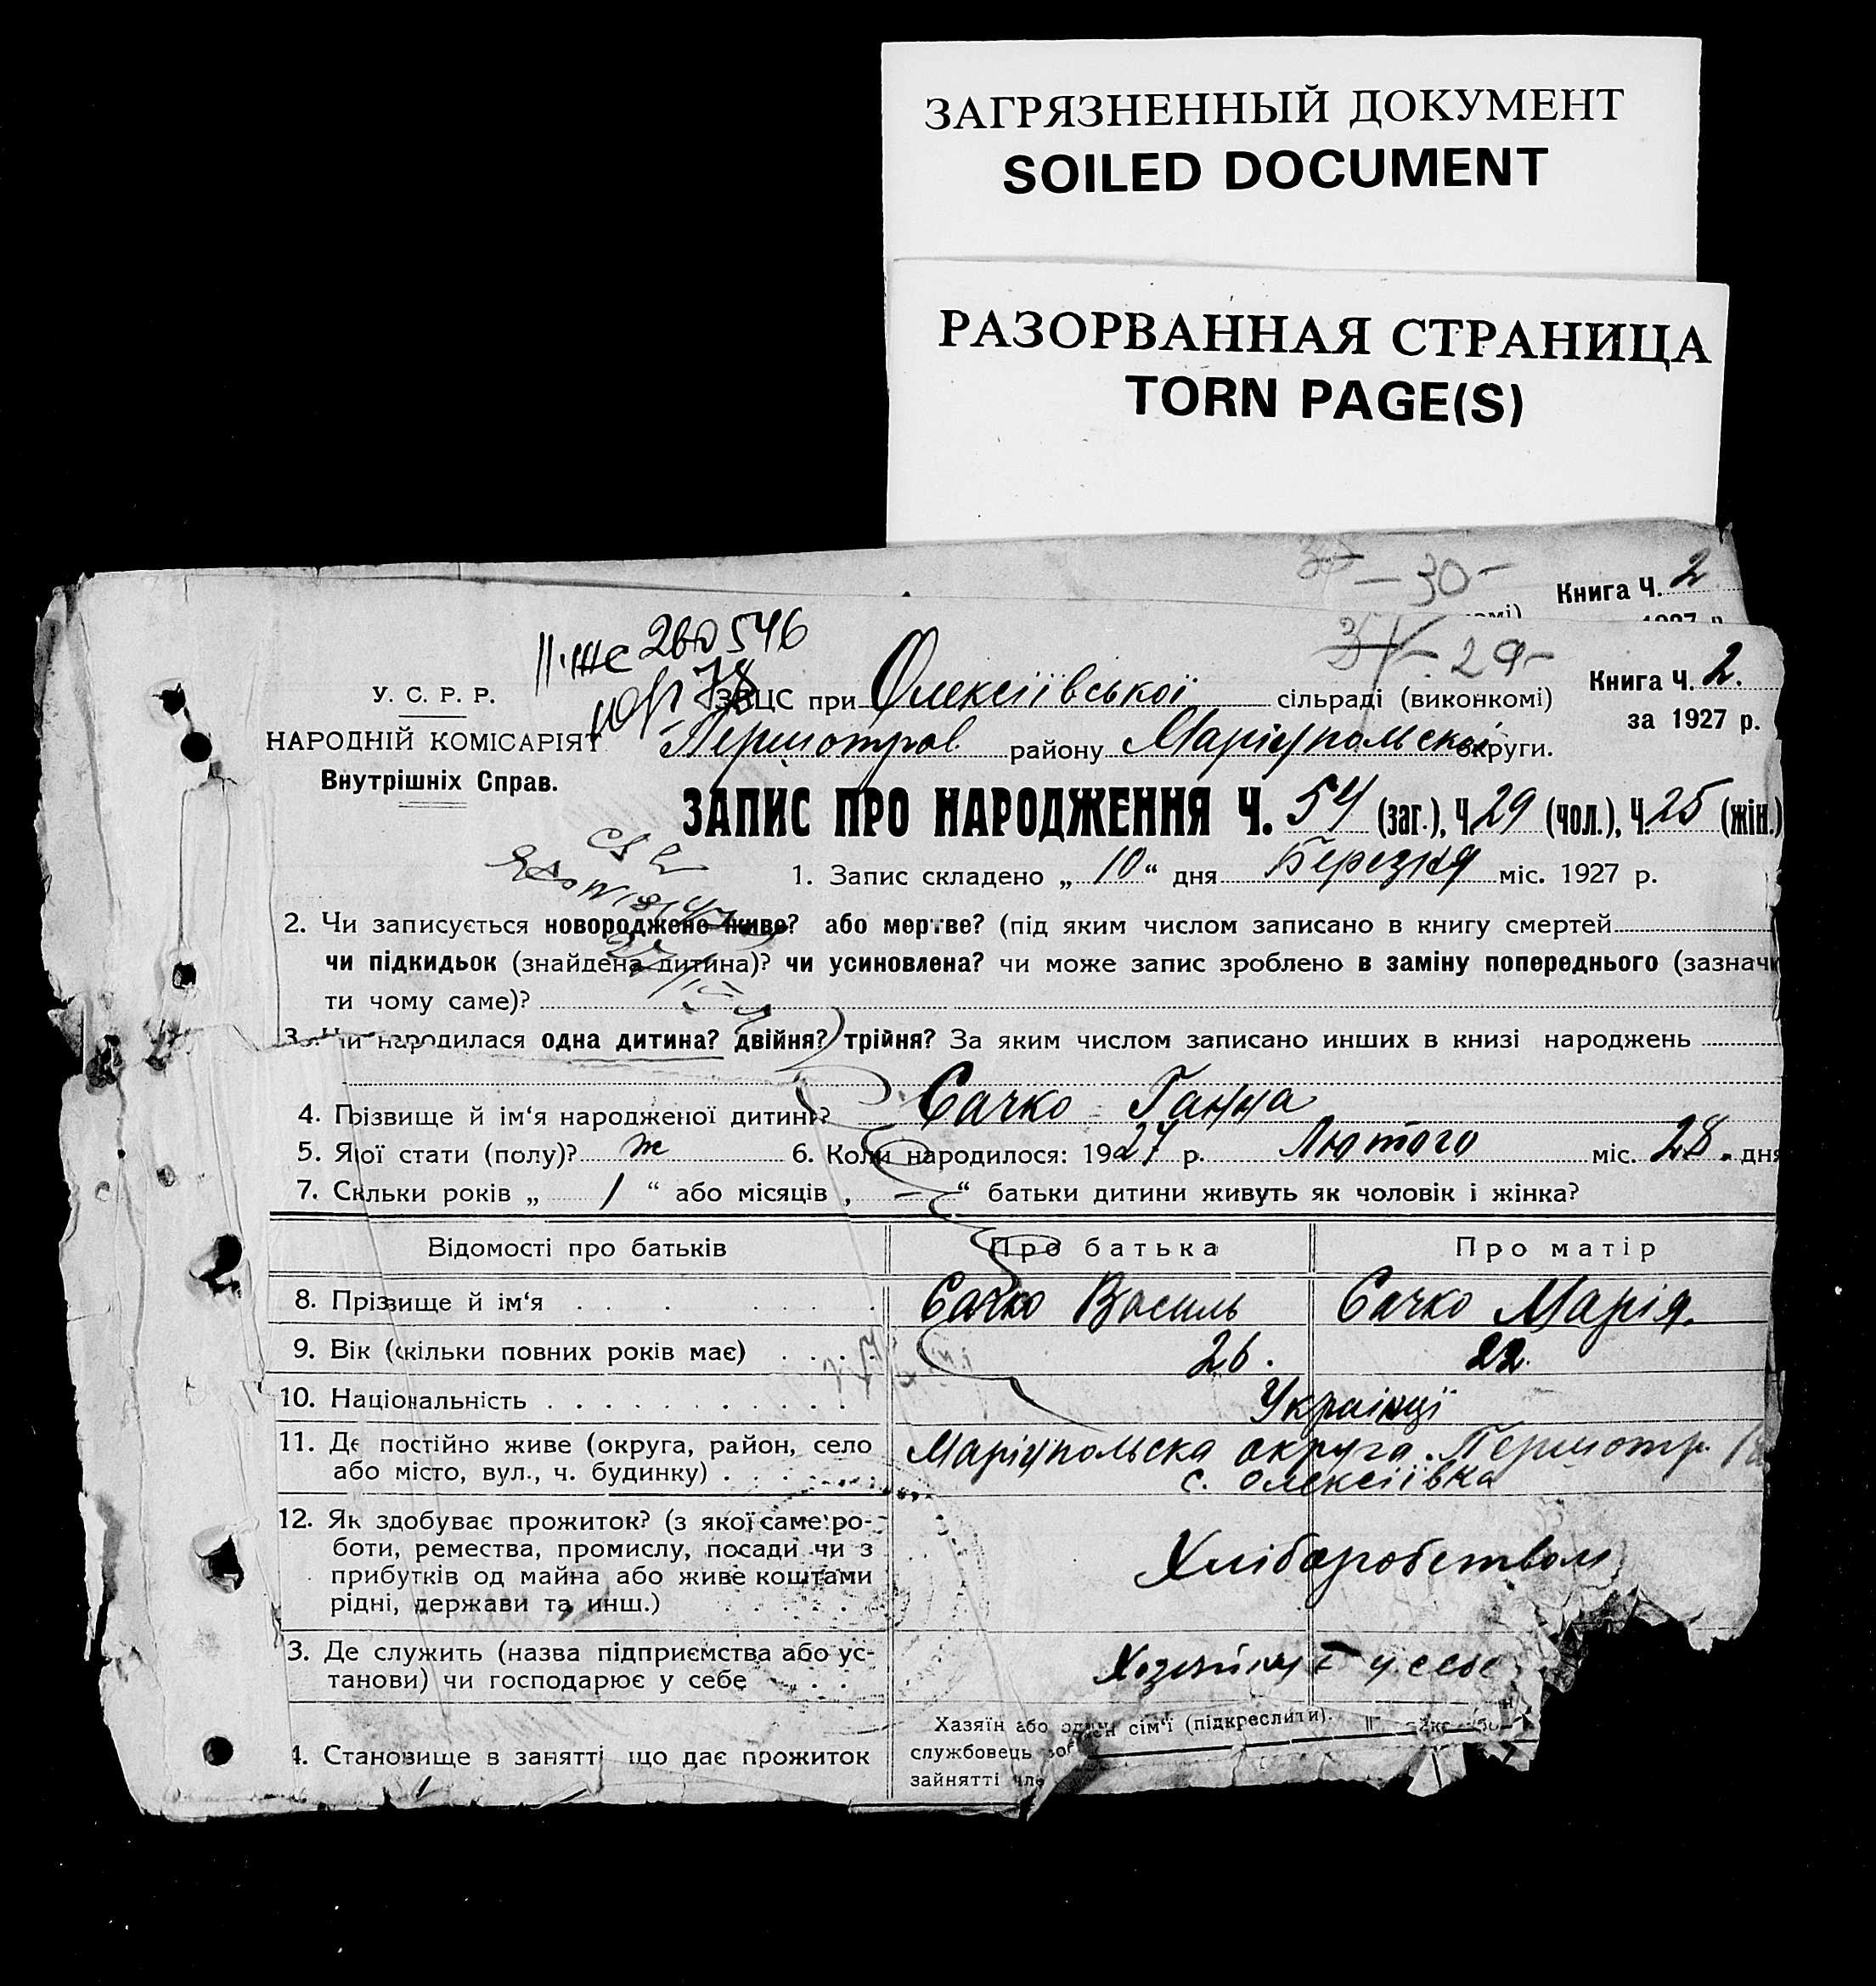 ЗАГРЯЗНЕННЫЙ ДОКУМЕНТ
SOILED DOCUMENT
РАЗОРВАННАЯ СТРАНИЦА
TORN PAGE(S)
— 30 —
Книга Ч. 2
1927 р.
II-ЖС 260546
— 29 —
Книга Ч. 2.
за 1927 р.
У. С. Р. Р.
НАРОДНІЙ КОМІСАРІЯТ
Внутрішніх Справ.
ЗАЦС при Олексіївської сільраді (виконкомі)
Першотров. району Маріупольської округи.
ЗАПИС ПРО НАРОДЖЕННЯ Ч. 54 (заг.), Ч. 29 (чол.), Ч. 25 (жін.)
1. Запис складено „ 10 “ дня Березня міс. 1927 р.
2. Чи записується новороджене живе? або мертве? (під яким числом записано в книгу смертей
чи підкидьок (знайдена дитина)? чи усиновлена? чи може запис зроблено в заміну попереднього (зазначи
ти чому саме)?
3. Чи народилася одна дитина? двійня? трійня? За яким числом записано инших в книзі народжень
4. Прізвище й ім‘я народженої дитини? Сачко Ганна
5. Якої стати (полу)? ж 6. Коли народилося: 1927 р. Лютого міс. 28. дня
7. Скільки років „ 1 “ або місяців „ — “ батьки дитини живуть як чоловік і жінка?
Відомості про батьків Про батька Про матір
8. Прізвище й ім‘я . . . . . . . Сачко Василь Сачко Марія.
9. Вік (скільки повних років має) . . . . 26. 22.
10. Національність . . . . . . . . . . . Українці
11. Де постійно живе (округа, район, село Маріупольска округа. Першотр.
або місто, вул., ч. будинку) . . . . с. Олексіївка
12. Як здобуває прожиток? (з якої саме ро-
боти, ремества, промислу, посади чи з Хліборобством
прибутків од майна або живе коштами
рідні, держави та инш.) . . . . .
3. Де служить (назва підприємства або ус-
танови) чи господарює у себе . . . у себе
Хазяїн або один сім‘ї (підкреслити).
4. Становище в занятті що дає прожиток службовець
зайнятті чле